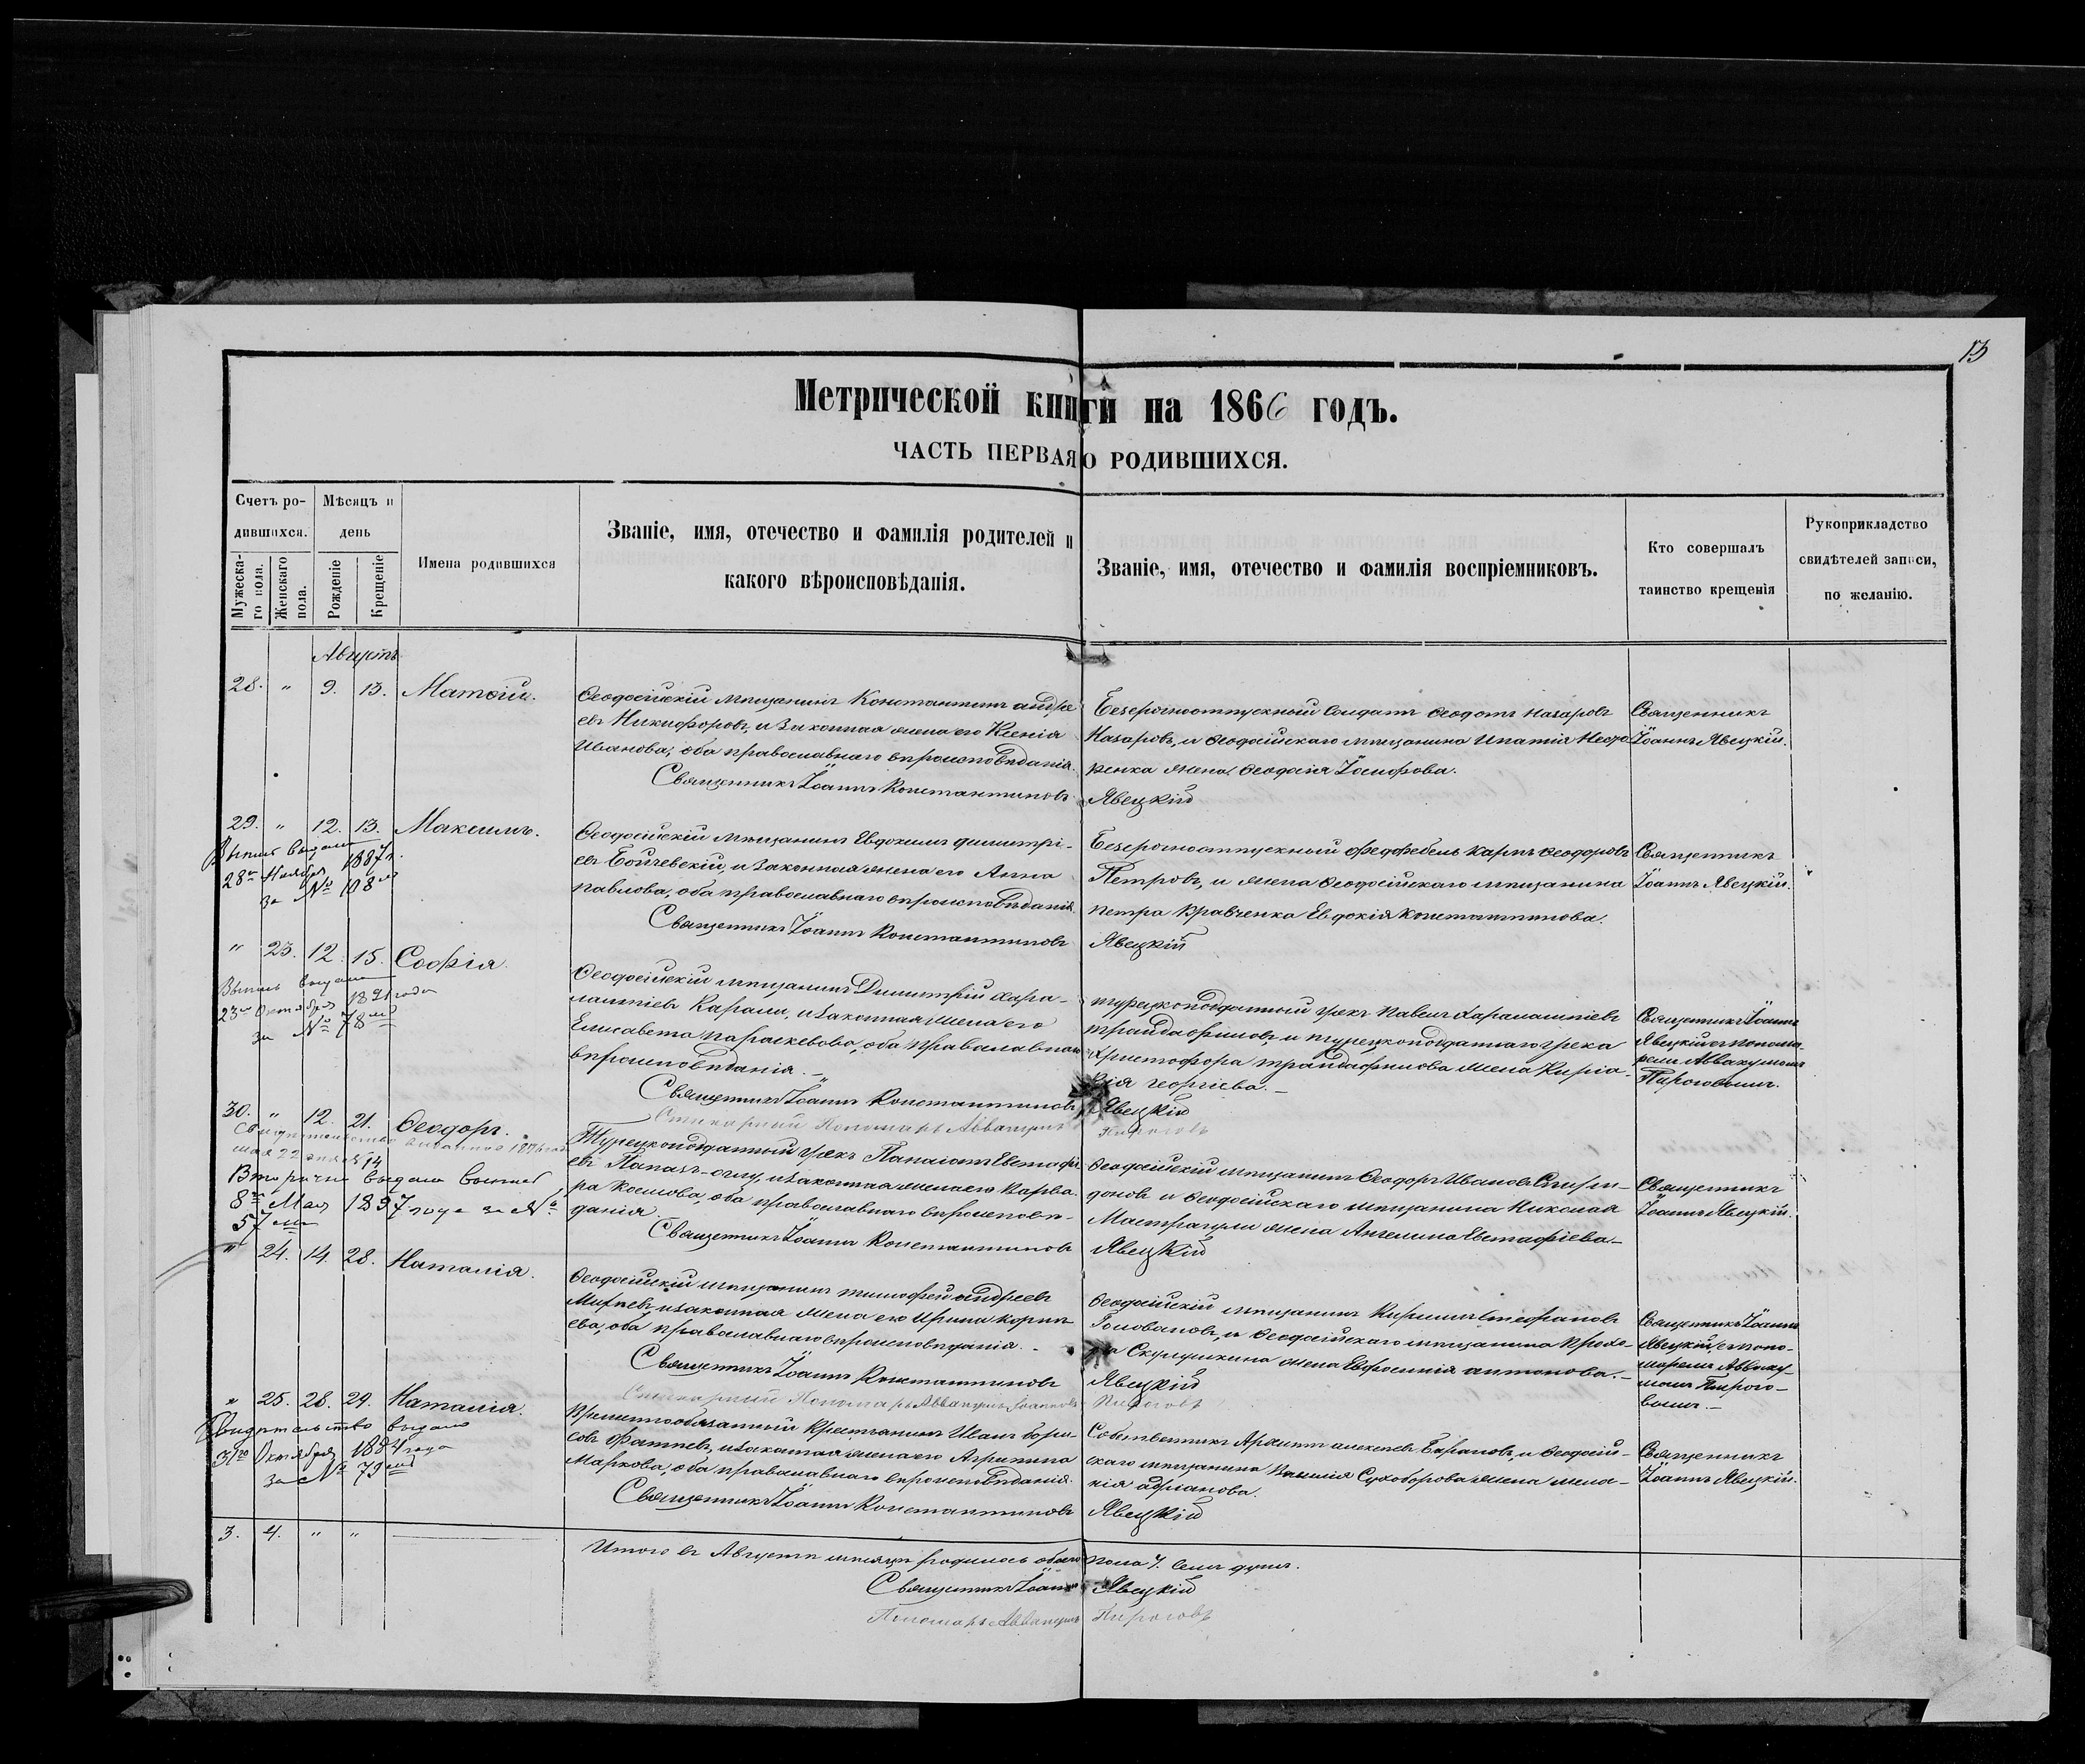 13
Метрической книги на 1866 годъ.
ЧАСТЬ ПЕРВАЯ О РОДИВШИХСЯ.
Счетъ родившихся.
Мужескаго пола.
Женскаго пола.
Мѣсяцъ и день
Рожденіе
Крещеніе
Имена родившихся
Званіе, имя, отечество и фамилія родителей и
какого вѣроисповѣданія.
Званіе, имя, отечество и фамилія воспріемниковъ.
Кто совершалъ
таинство крещенія
Рукоприкладство
свидѣтелей записи,
по желанію.
Августъ
28. " 9. 13. Матѳій.
Ѳеодосійскій мѣщанинъ Константинъ андре
евъ Никифоровъ, и законная жена его Ксенія
Иванова; оба православнаго вѣроисповѣданія.
Священникъ Іоаннъ Константиновъ Явецкій
Безсрочноотпускный солдатъ Ѳеодотъ Назаровъ
Назаровъ, и Ѳеодосійскаго мѣщанина Ипатія
ренка жена Ѳеодосія Іосифова.
Священникъ
Іоаннъ Явецкій.
29. " 12. 13. Максимъ.
Выпись выдана
28го Ноября 1887г.
за № 108м
Ѳеодосійскій мѣщанинъ Евдокимъ димитрі-
евъ Бойчевскій, и законная жена его Анна
павлова, оба православнаго вѣроисповѣданія.
Священникъ Іоаннъ Константиновъ Явецкій
Безсрочноотпускный фелдфебель Карпъ Ѳеодоровъ
Петровъ, и жена Ѳеодосійскаго мѣщанина
петра Кравченка Евдокія Константинова.
Священникъ
Іоаннъ Явецкій.
" 23. 12. 15. Софія.
Выпись выдана
23го Октября 1891 года
за № 78мъ
Ѳеодосійскій мѣщанинъ Димитрій хара-
лампіевъ Карали, и законная жена его
Елисавета Параскевова, оба православнаго
вѣроисповѣданія.
Священникъ Іоаннъ Константиновъ Явецкій
Пономарь Аввакумъ Пироговъ
турецкоподданный грекъ Павелъ Харалампіевъ
трандафиловъ, и турецкоподданнаго грека
Христофора трандафилова жена Киріа-
кія георгіева.
Священникъ Іоаннъ
Явецкій съ понома-
ремъ Аввакумомъ
Пироговымъ.
30. " 12. 21. Ѳеодоръ.
Вторично выдана выпись
8го Мая 1897 года за №
57мъ
Турецкоподданный грекъ Панаіотъ Евстафі
евъ Папазъ-оглу, и законная жена его Варва-
ра Космова, оба православнаго вѣроисповѣ-
данія.
Священникъ Іоаннъ Константиновъ Явецкій
Ѳеодосійскій мѣщанинъ Ѳеодоръ Ивановъ Спири-
доновъ и Ѳеодосійскаго мѣщанина Николая
Мастрагули жена Ангелина Евстафіева.
Священникъ
Іоаннъ Явецкій.
" 24. 14. 28. Наталія.
Ѳеодосійскій мѣщанинъ тимофей андреевъ
Михѣевъ, и законная жена его Ирина Корнѣ
ева, оба православнаго вѣроисповѣданія.
Священникъ Іоаннъ Константиновъ Явецкій
Пономарь Аввакумъ Іоанновъ Пироговъ
Ѳеодосійскій мѣщанинъ Кириллъ Стефановъ
Головановъ, и Ѳеодосійскаго мѣщанина Прохо-
ра жена Евфросинія антонова.
Священникъ Іоаннъ
Явецкій, съ поно-
маремъ Авваку-
момъ Пирого-
вымъ.
" 25. 28. 29. Наталія.
Свидѣтельство выдано
31го Октября 1884 года
за № 79мъ
Временнообязанный крестьянинъ Иванъ бори-
совъ Фатѣевъ, и законная жена его Агрипина
Маркова, оба православнаго вѣроисповѣданія.
Священникъ Іоаннъ Константиновъ Явецкій
Собственникъ Архипъ алексѣевъ Барановъ, и Ѳеодосій-
скаго мѣщанина Сухоборова жена мела-
нія адріанова.
Священникъ
Іоаннъ Явецкій.
3. 4. " "
Итого въ Августѣ мѣсяцѣ родилось обоего пола 7. семь душъ.
Священникъ Іоаннъ Явецкій
Пономарь Аввакумъ Пироговъ